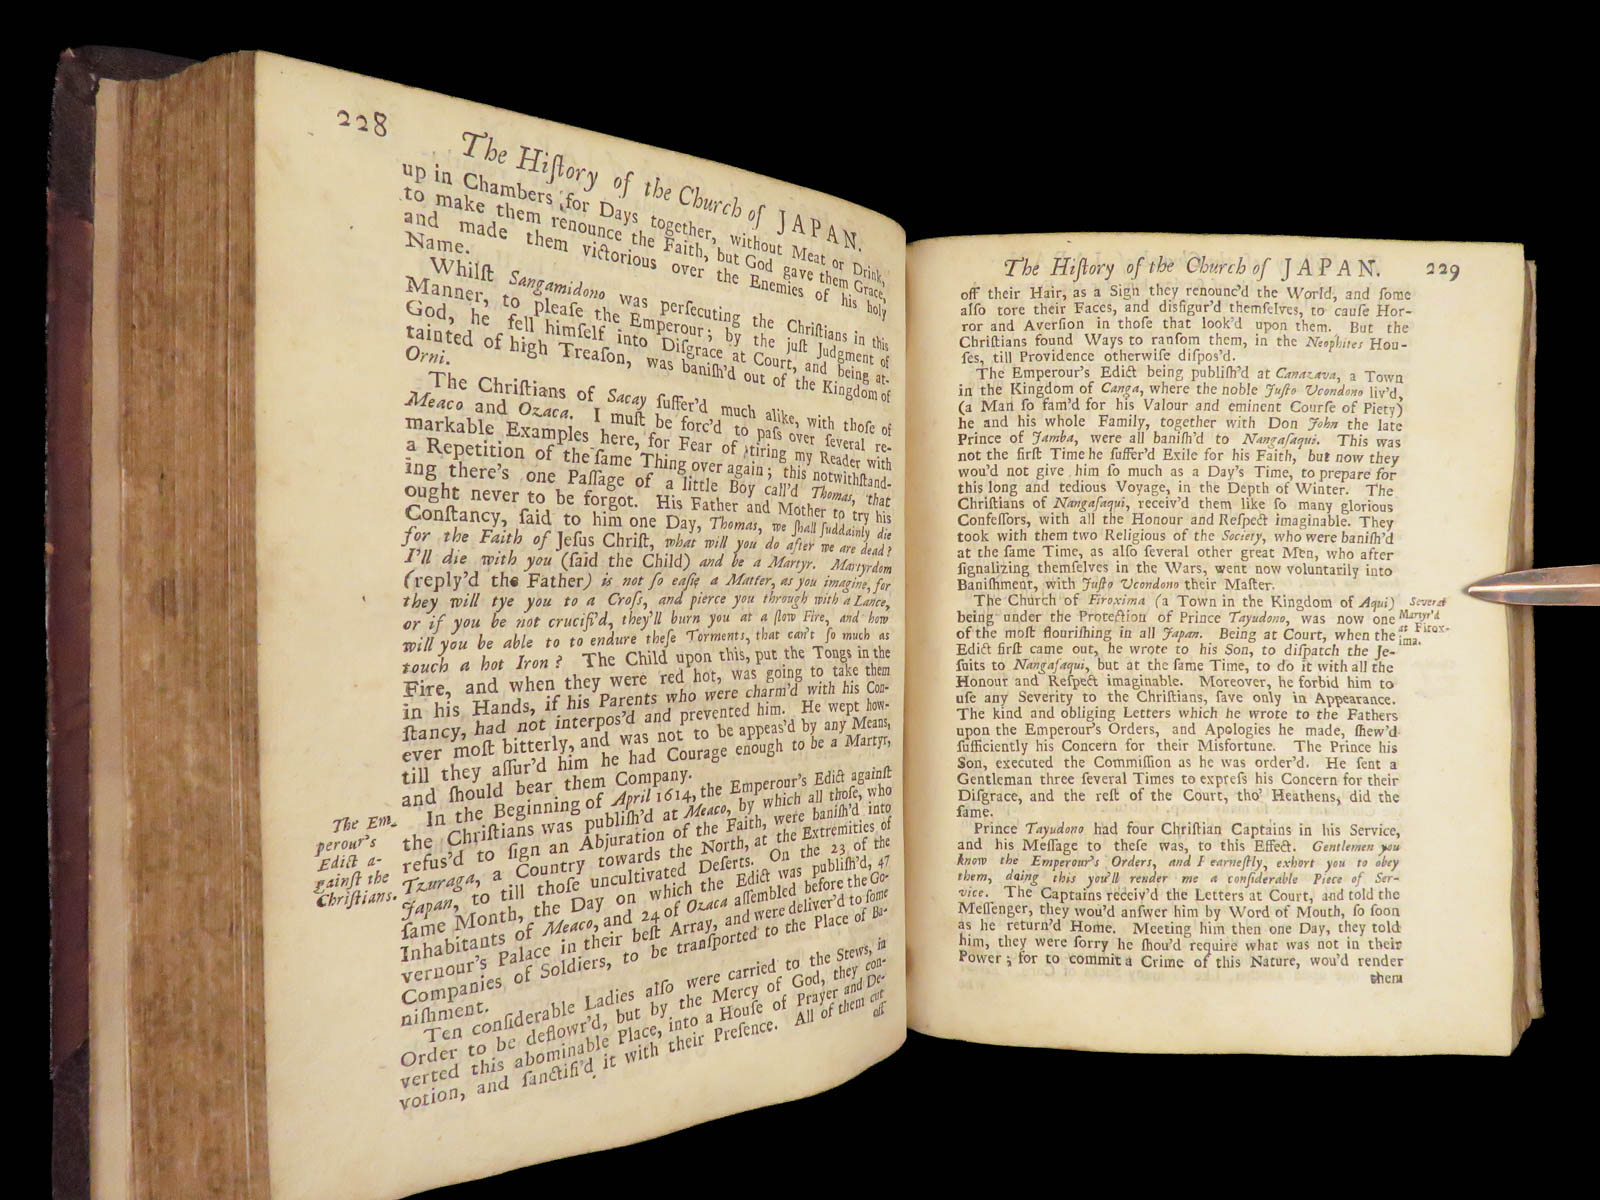 228
The Hiſtory of the Church of JAPAN.
up in Chambers for Days together, without Meat or Drink,
to make them renounce the Faith, but God gave them Grace,
and made them victorious over the Enemies of his holy
Name.
Whilſt Sangamidono was perſecuting the Chriſtians in this
Manner, to pleaſe the Emperour; by the juſt Judgment of
God, he fell himſelf into Diſgrace at Court, and being at-
tainted of high Treaſon, was baniſh'd out of the Kingdom of
Orni.
The Chriſtians of Sacay ſuffer'd much alike, with thoſe of
Meaco and Ozaca. I muſt be forc'd to paſs over ſeveral re-
markable Examples here, for Fear of tiring my Reader with
a Repetition of the ſame Thing over again; this notwithſtand-
ing there's one Paſſage of a little Boy call'd Thomas, that
ought never to be forgot. His Father and Mother to try his
Conſtancy, ſaid to him one Day, Thomas, we ſhall ſuddainly die
for the Faith of Jeſus Chriſt, what will you do after we are dead?
I'll die with you (ſaid the Child) and be a Martyr. Martyrdom
(reply'd the Father) is not ſo eaſie a Matter, as you imagine, for
they will tye you to a Croſs, and pierce you through with a Lance,
or if you be not crucifi'd, they'll burn you at a ſlow Fire, and how
will you be able to to endure theſe Torments, that can't ſo much as
touch a hot Iron? The Child upon this, put the Tongs in the
Fire, and when they were red hot, was going to take them
in his Hands, if his Parents who were charm'd with his Con-
ſtancy, had not interpos'd and prevented him. He wept how-
ever moſt bitterly, and was not to be appeas'd by any Means,
till they aſſur'd him he had Courage enough to be a Martyr,
and ſhould bear them Company.
In the Beginning of April 1614, the Emperour's Edict againſt
the Chriſtians was publiſh'd at Meaco, by which all thoſe, who
refus'd to ſign an Abjuration of the Faith, were baniſh'd into
Tzuraga, a Country towards the North, at the Extremities of
Japan, to till thoſe uncultivated Deſerts. On the 23 of the
ſame Month, the Day on which the Edict was publiſh'd, 47
Inhabitants of Meaco, and 24 of Ozaca aſſembled before the Go-
vernour's Palace in their beſt Array, and were deliver'd to ſome
Companies of Soldiers, to be tranſported to the Place of Ba-
niſhment.
Ten conſiderable Ladies alſo were carried to the Stews, in
Order to be deflowr'd, but by the Mercy of God, they con-
verted this abominable Place, into a Houſe of Prayer and De-
votion, and ſanctifi'd it with their Preſence. All of them cut
off
The Em-
perour's
Edict a-
gainſt the
Chriſtians.
The Hiſtory of the Church of JAPAN. 229
off their Hair, as a Sign they renounc'd the World, and ſome
alſo tore their Faces, and disfigur'd themſelves, to cauſe Hor-
ror and Averſion in thoſe that look'd upon them. But the
Chriſtians found Ways to ranſom them, in the Neophites Hou-
ſes, till Providence otherwiſe diſpos'd.
The Emperour's Edict being publiſh'd at Canazava, a Town
in the Kingdom of Canga, where the noble Juſto Ucondono liv'd,
(a Man ſo fam'd for his Valour and eminent Courſe of Piety)
he and his whole Family, together with Don John the late
Prince of Jamba, were all baniſh'd to Nangaſaqui. This was
not the firſt Time he ſuffer'd Exile for his Faith, but now they
wou'd not give him ſo much as a Day's Time, to prepare for
this long and tedious Voyage, in the Depth of Winter. The
Chriſtians of Nangaſaqui, receiv'd them like ſo many glorious
Confeſſors, with all the Honour and Reſpect imaginable. They
took with them two Religious of the Society, who were baniſh'd
at the ſame Time, as alſo ſeveral other great Men, who after
ſignalizing themſelves in the Wars, went now voluntarily into
Baniſhment, with Juſto Ucondono their Maſter.
The Church of Firoxima (a Town in the Kingdom of Aqui)
being under the Protection of Prince Tayudono, was now one
of the moſt flouriſhing in all Japan. Being at Court, when the
Edict firſt came out, he wrote to his Son, to diſpatch the Je-
ſuits to Nangaſaqui, but at the ſame Time, to do it with all the
Honour and Reſpect imaginable. Moreover, he forbid him to
uſe any Severity to the Chriſtians, ſave only in Appearance.
The kind and obliging Letters which he wrote to the Fathers
upon the Emperour's Orders, and Apologies he made, ſhew'd
ſufficiently his Concern for their Misfortune. The Prince his
Son, executed the Commiſſion as he was order'd. He ſent a
Gentleman three ſeveral Times to expreſs his Concern for their
Diſgrace, and the reſt of the Court, tho' Heathens, did the
ſame.
Prince Tayudono had four Chriſtian Captains in his Service,
and his Meſſage to theſe was, to this Effect. Gentlemen you
know the Emperour's Orders, and I earneſtly, exhort you to obey
them, doing this you'll render me a conſiderable Piece of Ser-
vice. The Captains receiv'd the Letters at Court, and told the
Meſſenger, they wou'd anſwer him by Word of Mouth, ſo ſoon
as he return'd Home. Meeting him then one Day, they told
him, they were ſorry he ſhou'd require what was not in their
Power; for to commit a Crime of this Nature, wou'd render
them
Several
Martyr'd
at Firox-
ima.